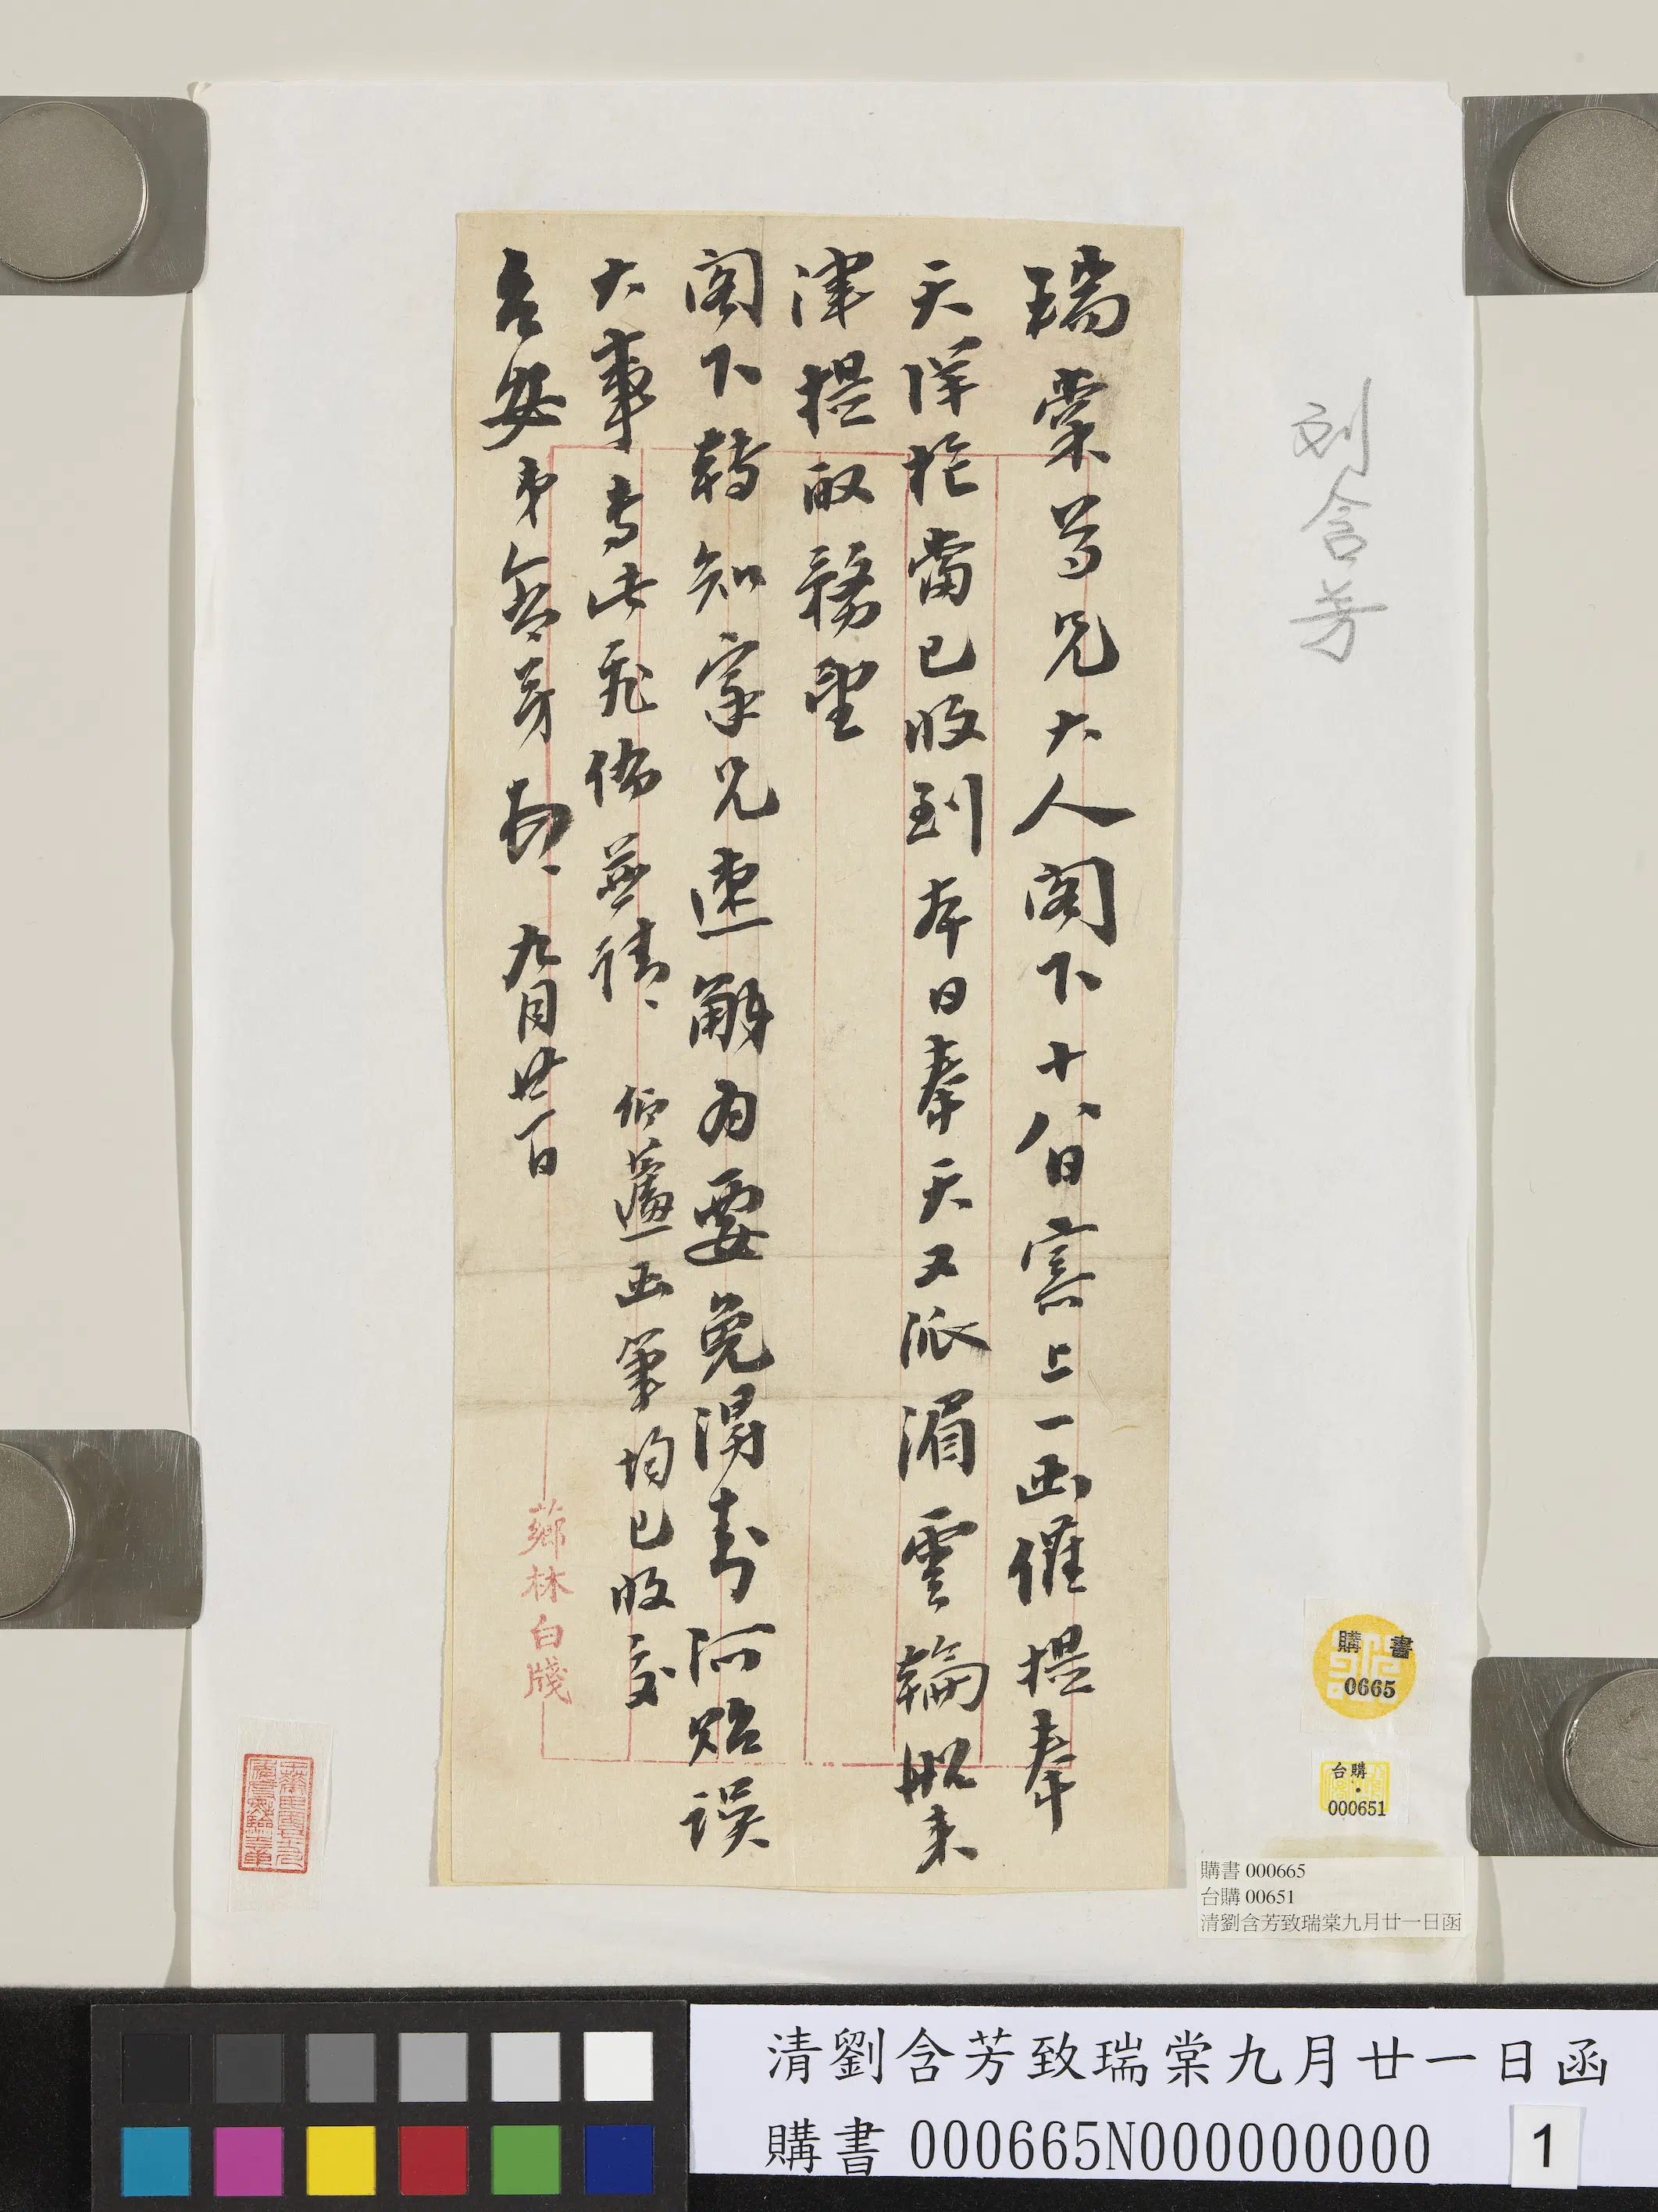 劉含芳
瑞棠尊兄大人閣下十八日上一函催提奉
天洋槍當已收到本日奉天又派湄雲輪船來
津提取務望
閣下轉知家兄速解為要免貽誤
大事專此飛佈並請
台安弟含芳頓 九月廿一日
函筆均已收交
薌林白牋
購書
0665
台購
000651
購書 000665
台購 00651
清劉含芳致瑞棠九月廿一日函
清劉含芳致瑞棠九月廿一日函
購書 000665N000000000
1